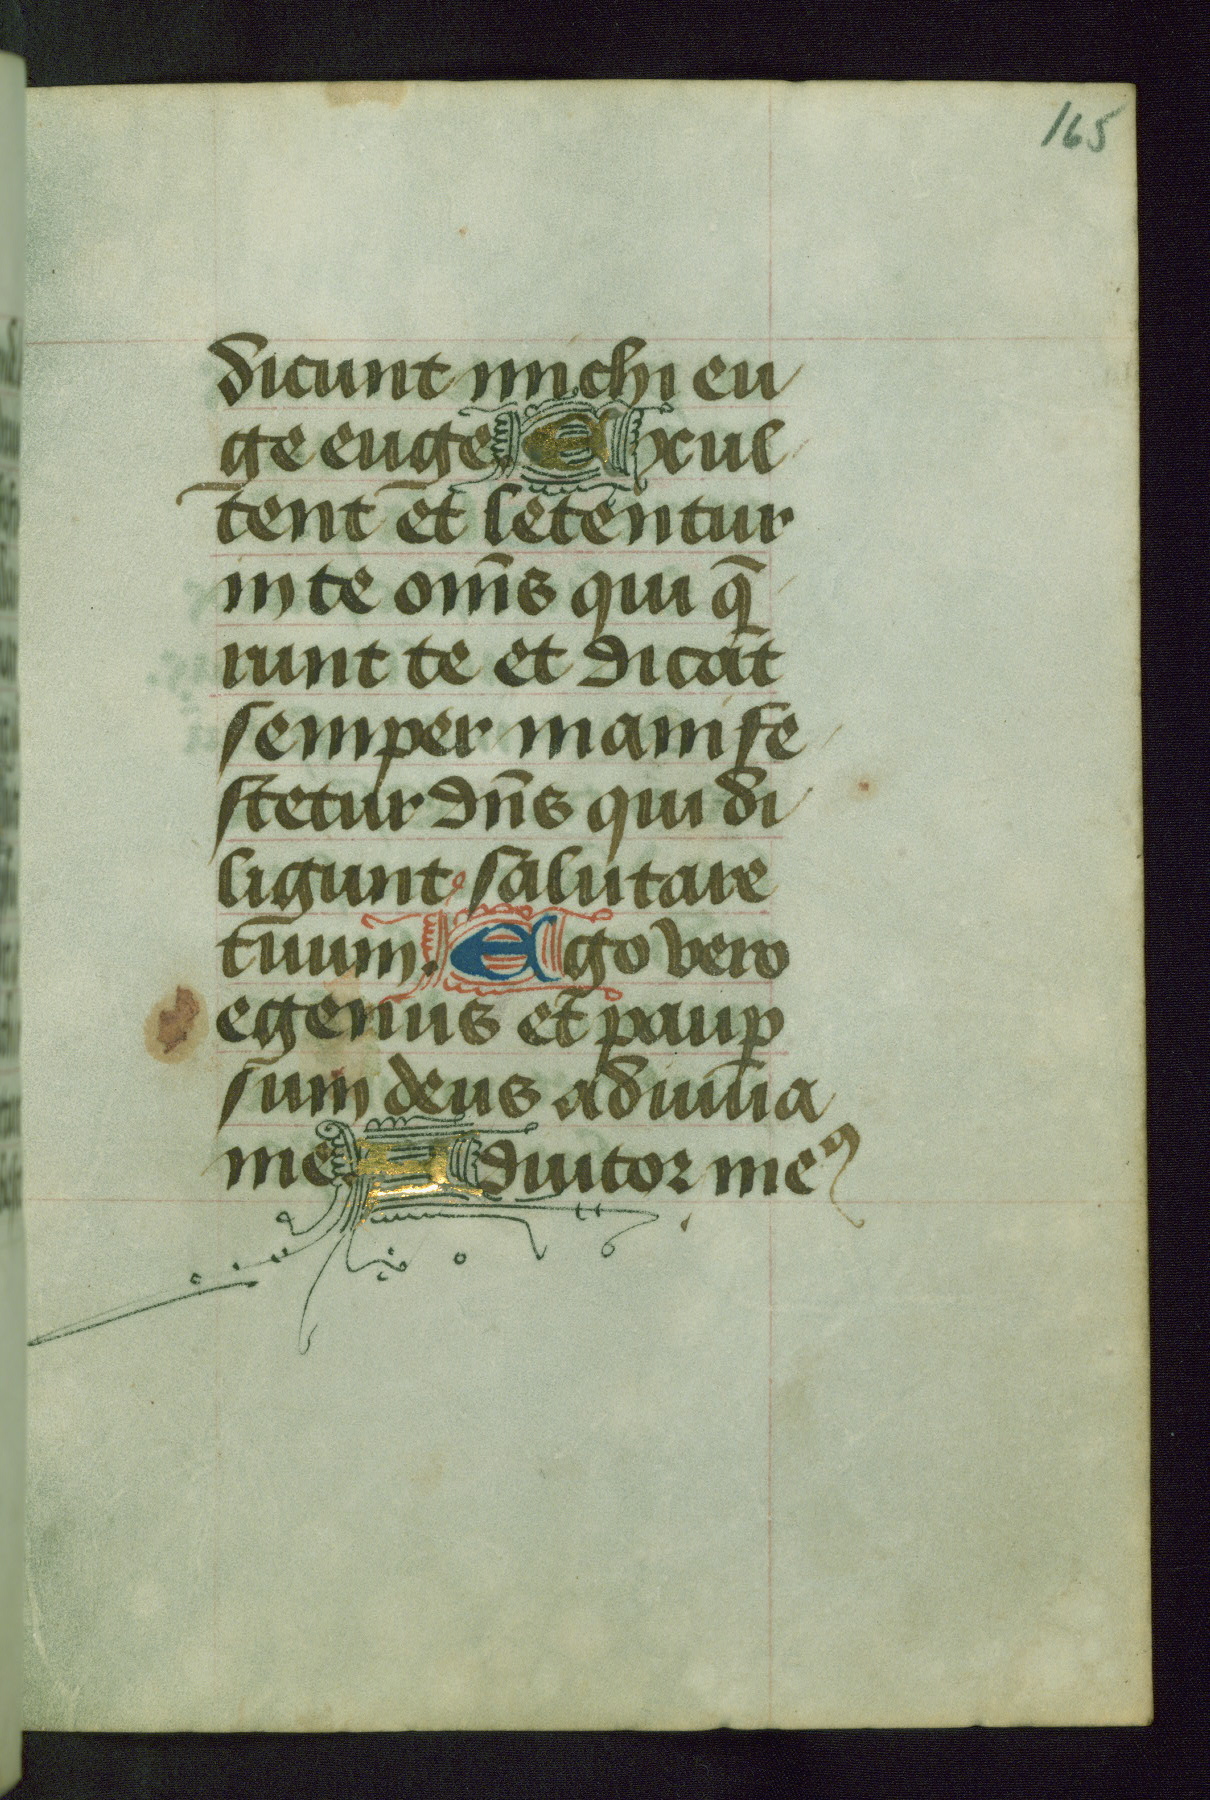 165
dicunt michi eu
ge euge. Exul
tent et letentur
in te om̄s qui q̄
runt te et dicāt
semper manife
stetur dn̄s qui di
ligunt salutare
tuum. Ego vero
egenus et paup
sum deus adiuua
me. Adiutor meꝰ